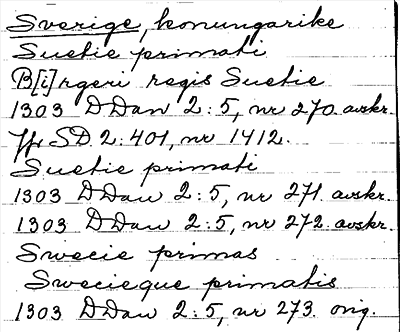 Sverige, konungarike
Suetie primati
B[i]rgeri regis Suetie
1303 DDan 2:5, nr 270. avskr.
Jfr SD 2:401, nr 1412.
Suetie primati
1303 DDan 2:5, nr 271. avskr.
1303 DDan 2:5, nr 272. avskr.
Swecie primas
Swecieque primatis
1303 DDan 2:5, nr 273. orig.